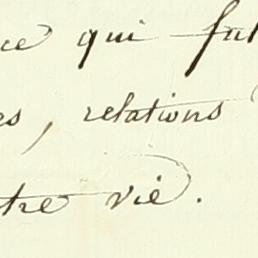 ce qui fut
es, relations
tre vie.